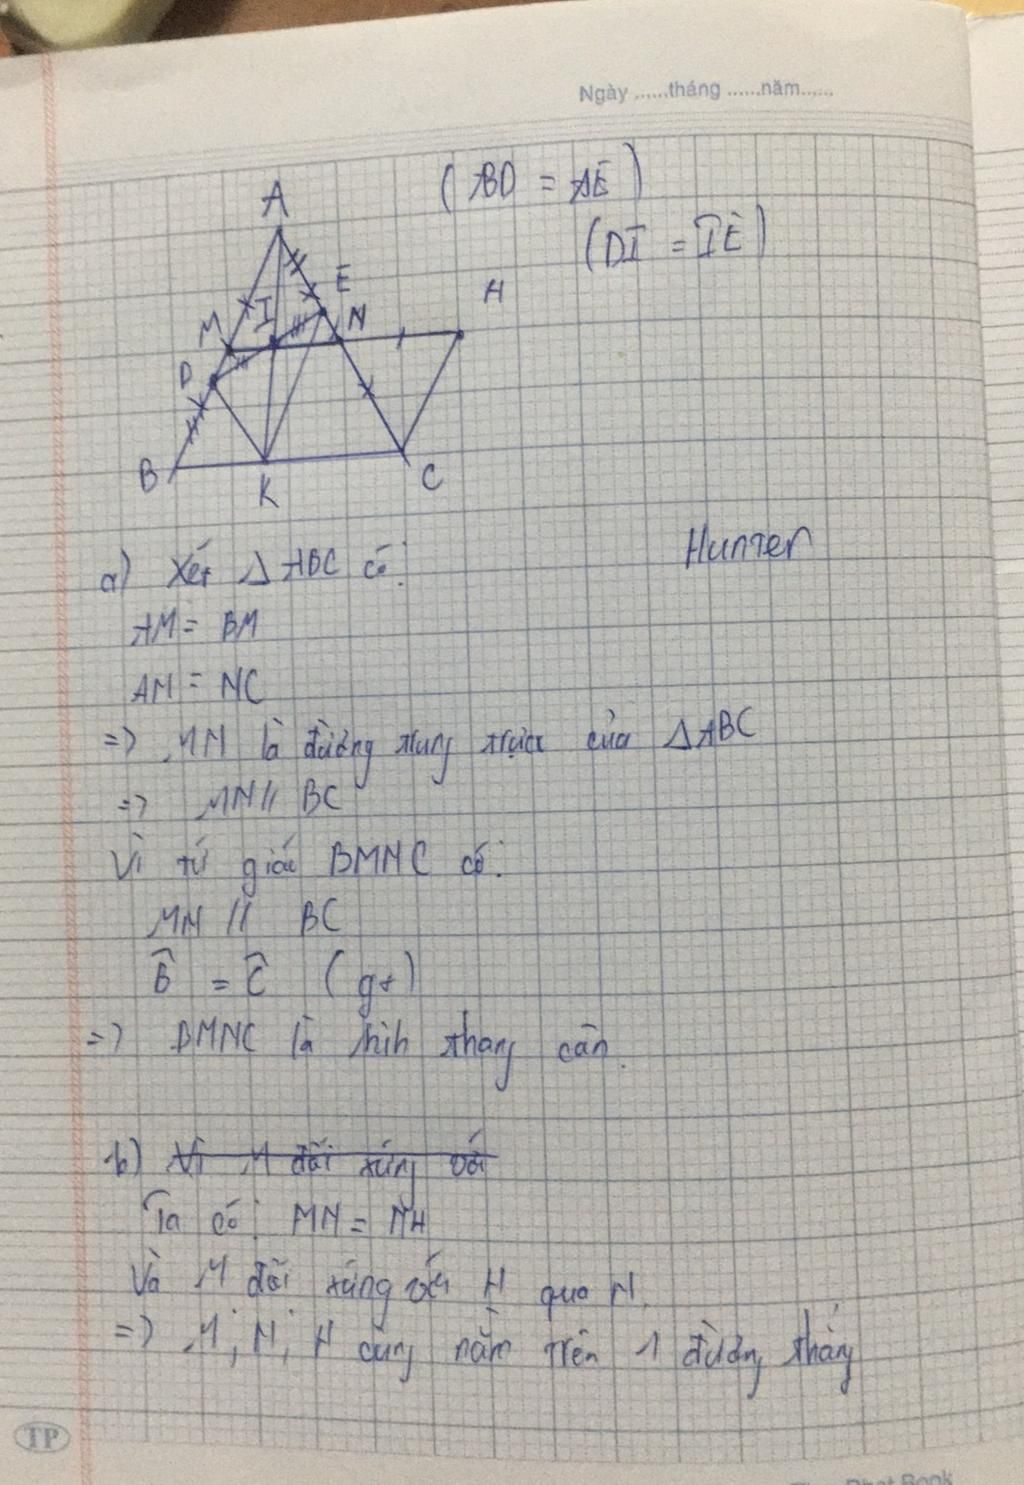 Ngày ......tháng ......năm......
(BD = AE)
(DI = IE)
A
E
H
M I N
D
B K C
Hunter
a) Xét Δ ABC có:
AM = BM
AN = NC
=> MN là đường trung trực của Δ ABC
=> MN // BC
Vì tứ giác BMNC có:
MN // BC
B̂ = Ĉ (gt)
=> BMNC là hình thang cân.
b) Vì M đối xứng với
Ta có: MN = NH
Và M đối xứng với H qua N.
=> M, N, H cùng nằm trên 1 đường thẳng
TP
Book